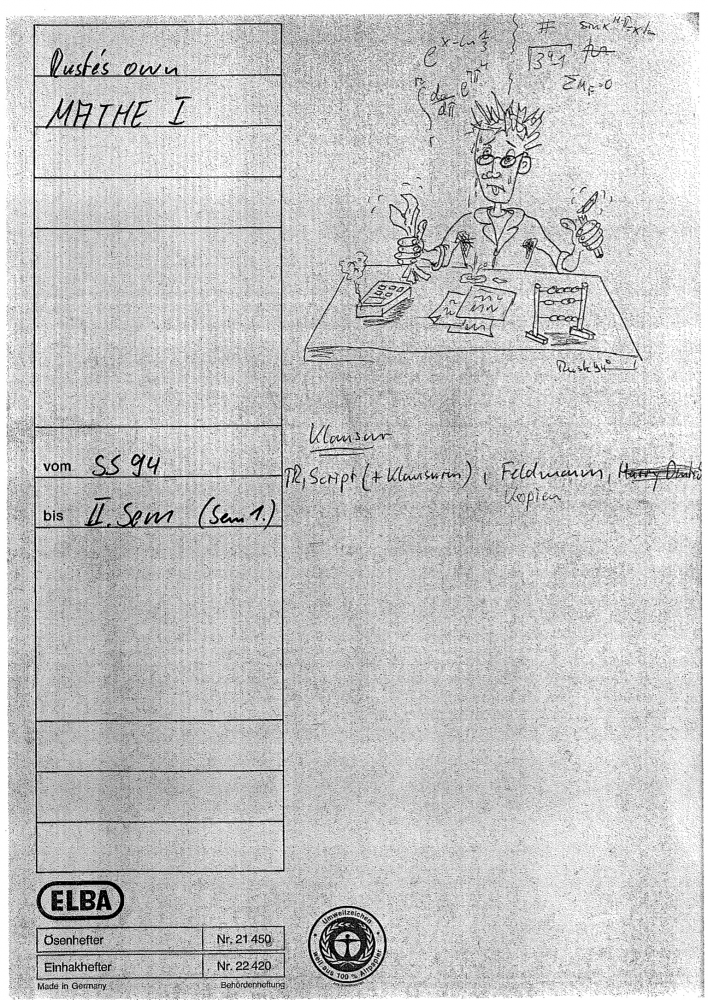 Rusté's own
MATHE I
vom SS 94
bis II. Sem (Sem 1.)
e^x-ln 4/3
#
sinx
ΣM_F=0
Rusk 94
Klausur
TR, Script (+ Klausuren), Feldmann, Harry
Kopien
ELBA
Ösenhefter Nr. 21 450
Einhakhefter Nr. 22 420
Made in Germany Behördenheftung
Umweltzeichen
weil aus 100 % Altpapier